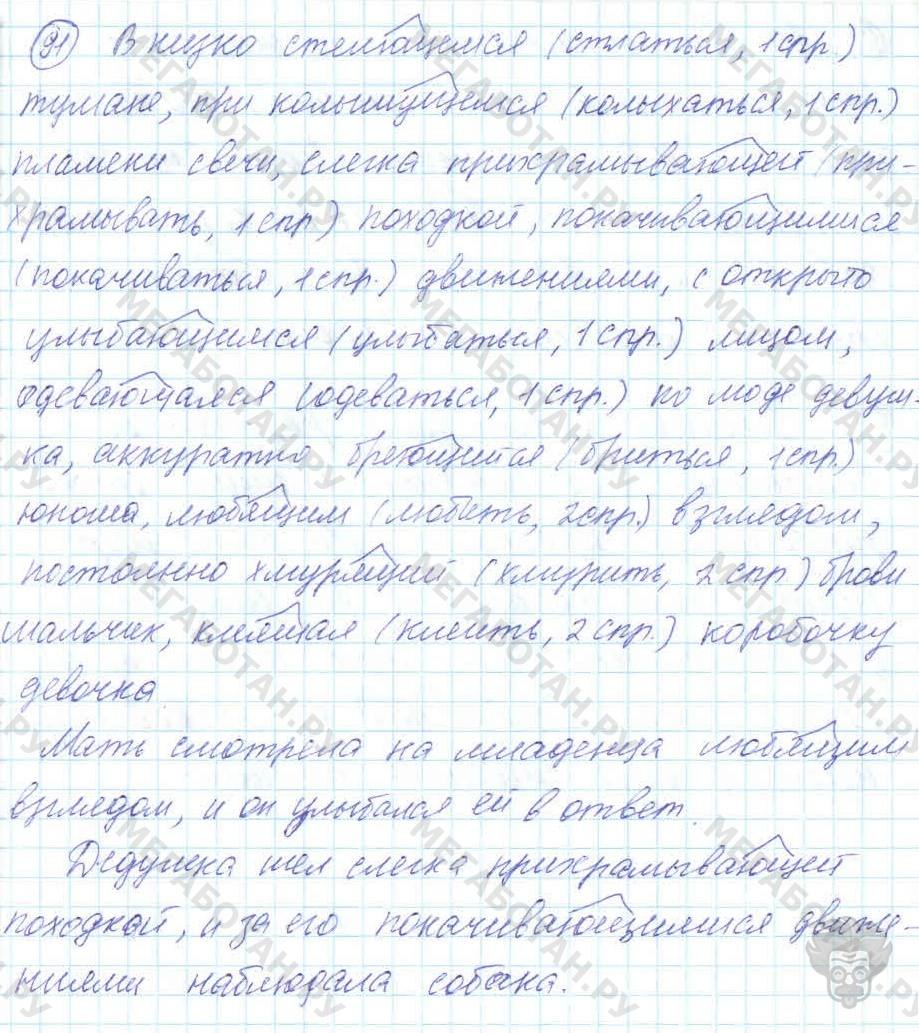 91 В низко стелющемся (стлаться, 1 спр.)
тумане, при колышущемся (колыхаться, 1 спр.)
пламени свечи, слегка прихрамывающей (при-
храмывать, 1 спр) походкой, покачивающимися
(покачиваться, 1 спр.) движениями, с открыто
улыбающимся (улыбаться, 1 спр.) лицом,
одевающаяся (одеваться, 1 спр.) по моде девуш-
ка, аккуратно бреющийся (бриться, 1 спр.)
юноша, любящим (любить, 2 спр.) взглядом,
постоянно хмурящий (хмурить, 2 спр) брови
мальчик, клеящая (клеить, 2 спр.) коробочку
девочка.
Мать смотрела на младенца любящим
взглядом, и он улыбался ей в ответ.
Дедушка шел слегка прихрамывающей
походкой, и за его покачивающимися движе-
ниями наблюдала собака.
МЕГАБОТАН.РУ